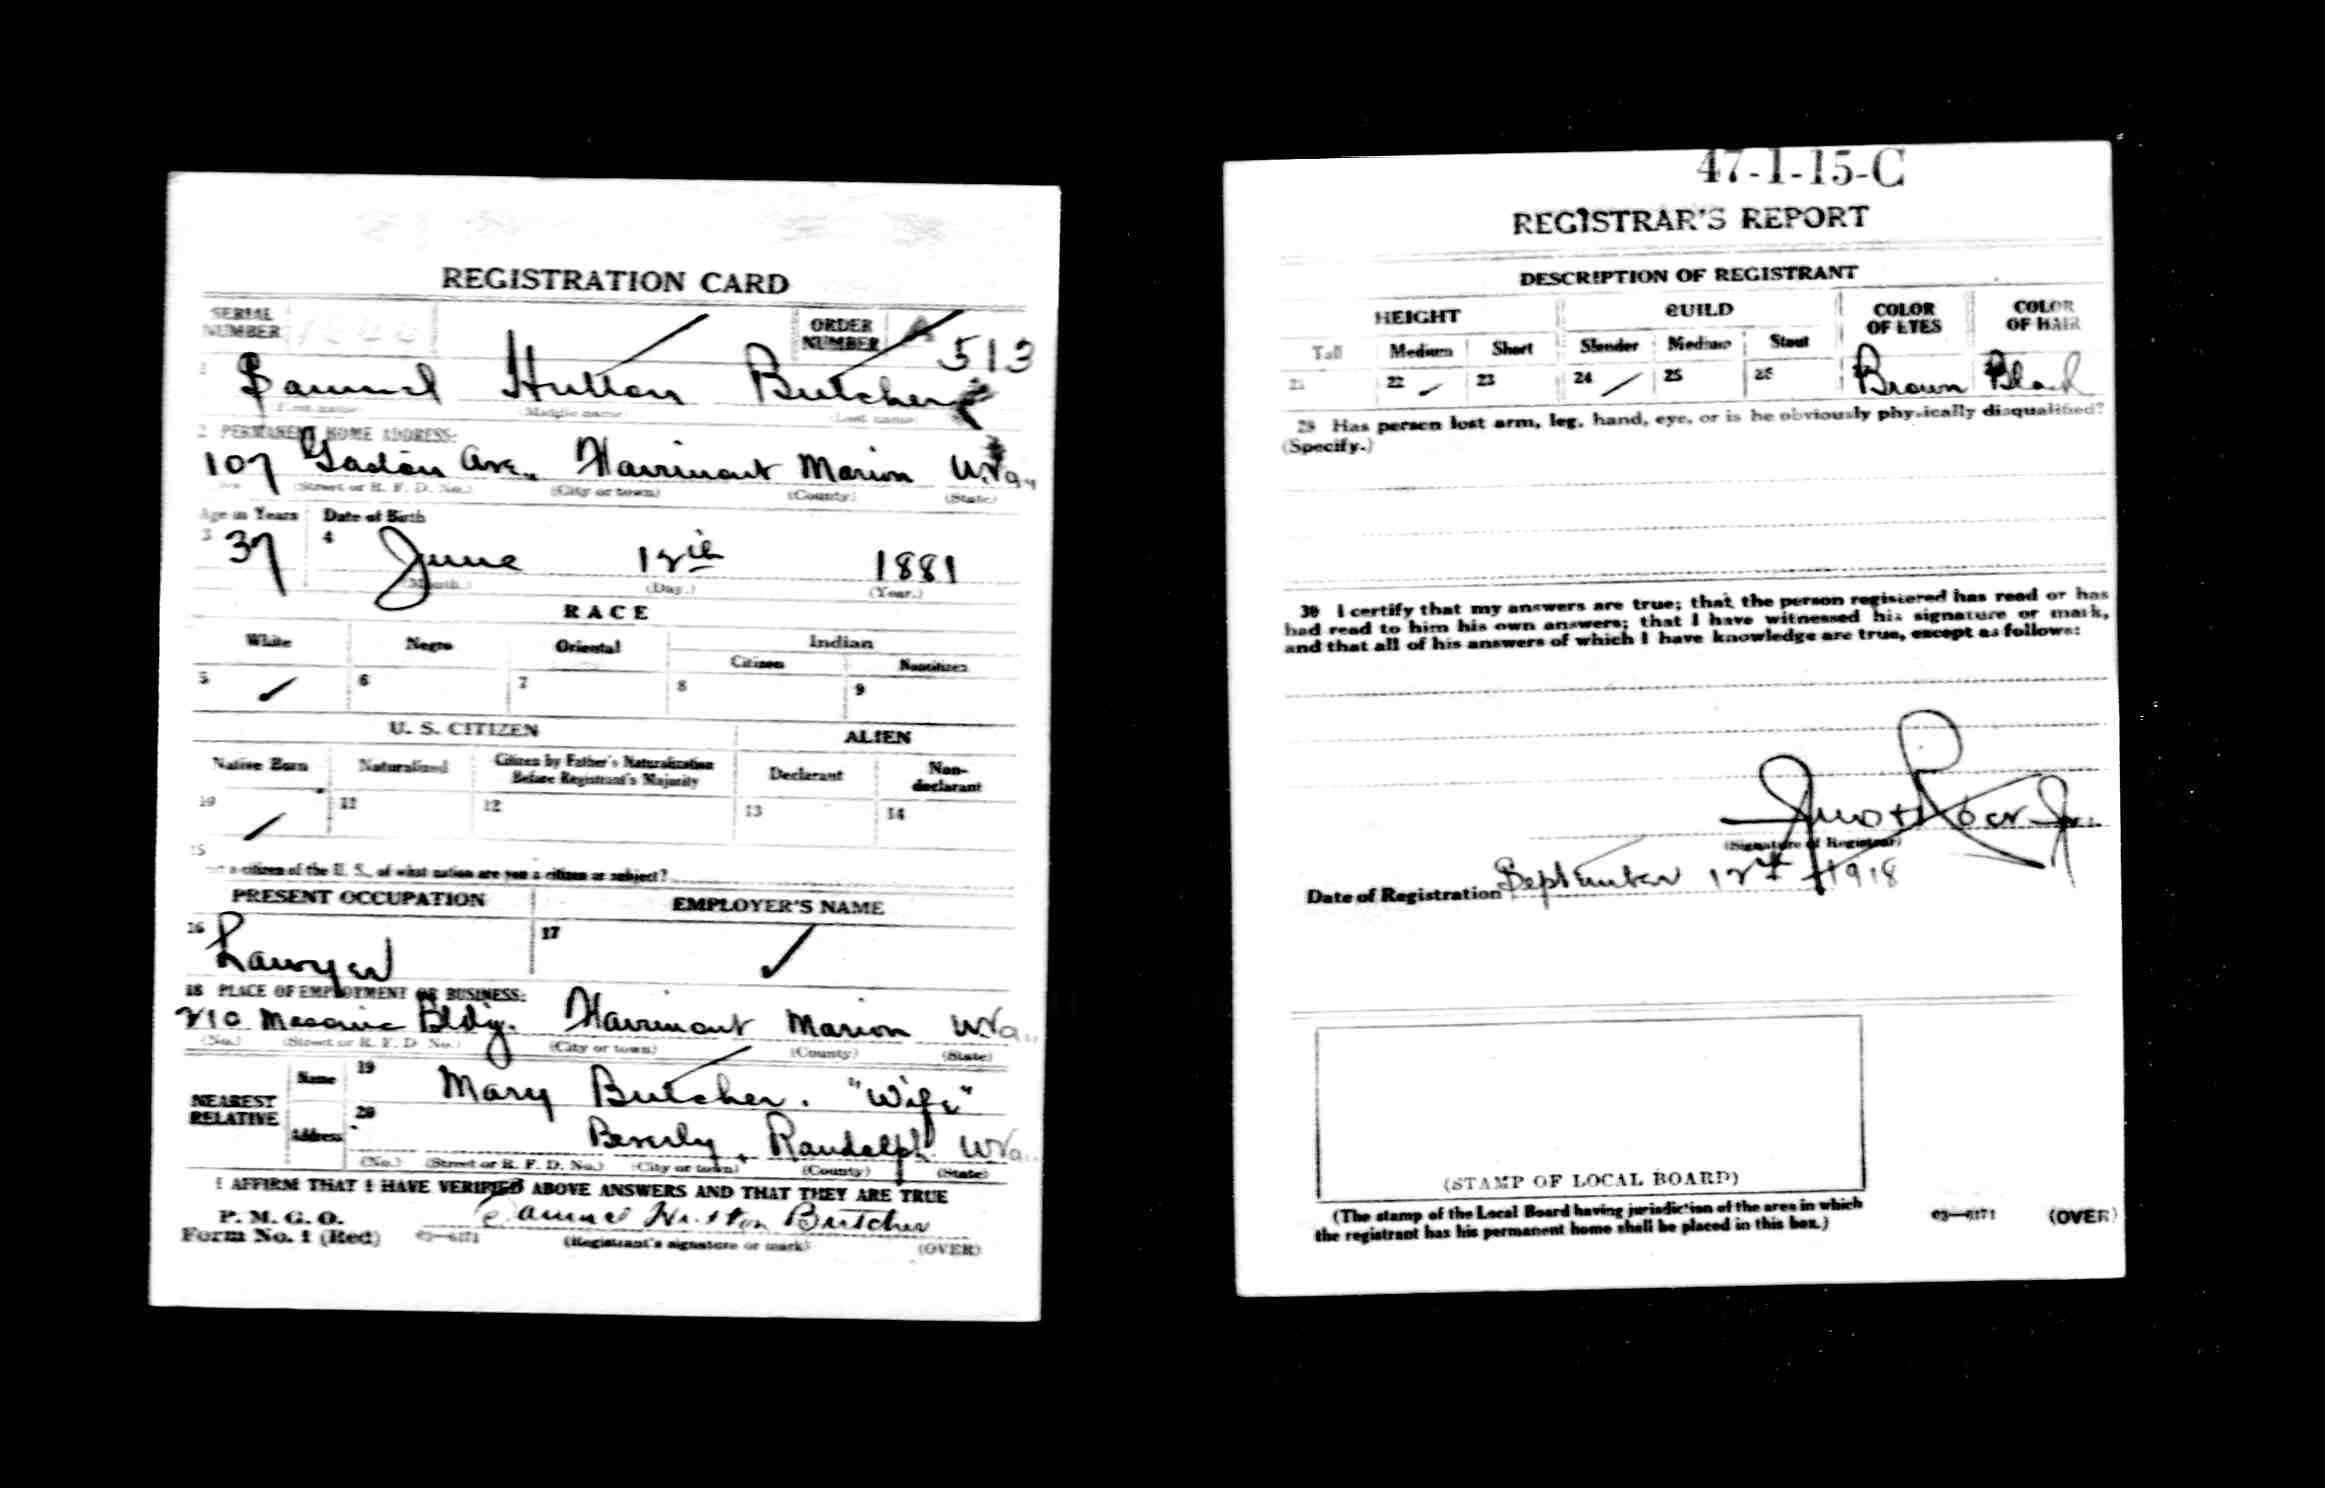 REGISTRATION CARD
SERIAL NUMBER ORDER NUMBER A 513
1 Samuel Hutton Butcher
First name (Middle name) (Last name)
2 PERMANENT HOME ADDRESS:
107 Gaston Ave., Fairmont Marion W.Va.
(Street or R. F. D. No.) (City or town) (County) (State)
Age in Years Date of Birth
3 37 4 June 12th 1881
(Month.) (Day.) (Year.)
RACE
White Negro Oriental Indian
Citizen Noncitizen
5 ✓ 6 7 8 9
U. S. CITIZEN ALIEN
Native Born Naturalized Citizen by Father's Naturalization Before Registrant's Majority Declarant Non-declarant
10 ✓ 11 12 13 14
15
a citizen of the U. S., of what nation are you a citizen or subject?
PRESENT OCCUPATION EMPLOYER'S NAME
16 Lawyer 17 ✓
18 PLACE OF EMPLOYMENT OR BUSINESS:
210 Masonic Bldg. Fairmont Marion WVa.
(No.) (Street or R. F. D. No.) (City or town) (County) (State)
NEAREST RELATIVE Name 19 Mary Butcher. "Wife"
Address 20 Beverly, Randolph WVa.
(No.) (Street or R. F. D. No.) (City or town) (County) (State)
I AFFIRM THAT I HAVE VERIFIED ABOVE ANSWERS AND THAT THEY ARE TRUE
P. M. G. O.
Form No. 1 (Red) 03—6171 Samuel Hutton Butcher
(Registrant's signature or mark) (OVER)
47-1-15-C
REGISTRAR'S REPORT
DESCRIPTION OF REGISTRANT
HEIGHT BUILD COLOR OF EYES COLOR OF HAIR
Tall Medium Short Slender Medium Stout
21 22 ✓ 23 24 ✓ 25 26 Brown Black
29 Has person lost arm, leg, hand, eye, or is he obviously physically disqualified?
(Specify.)
30 I certify that my answers are true; that the person registered has read or has
had read to him his own answers; that I have witnessed his signature or mark,
and that all of his answers of which I have knowledge are true, except as follows:
(Signature of Registrar)
Date of Registration September 12th 1918
(STAMP OF LOCAL BOARD)
(The stamp of the Local Board having jurisdiction of the area in which
the registrant has his permanent home shall be placed in this box.)
03—6171 (OVER)